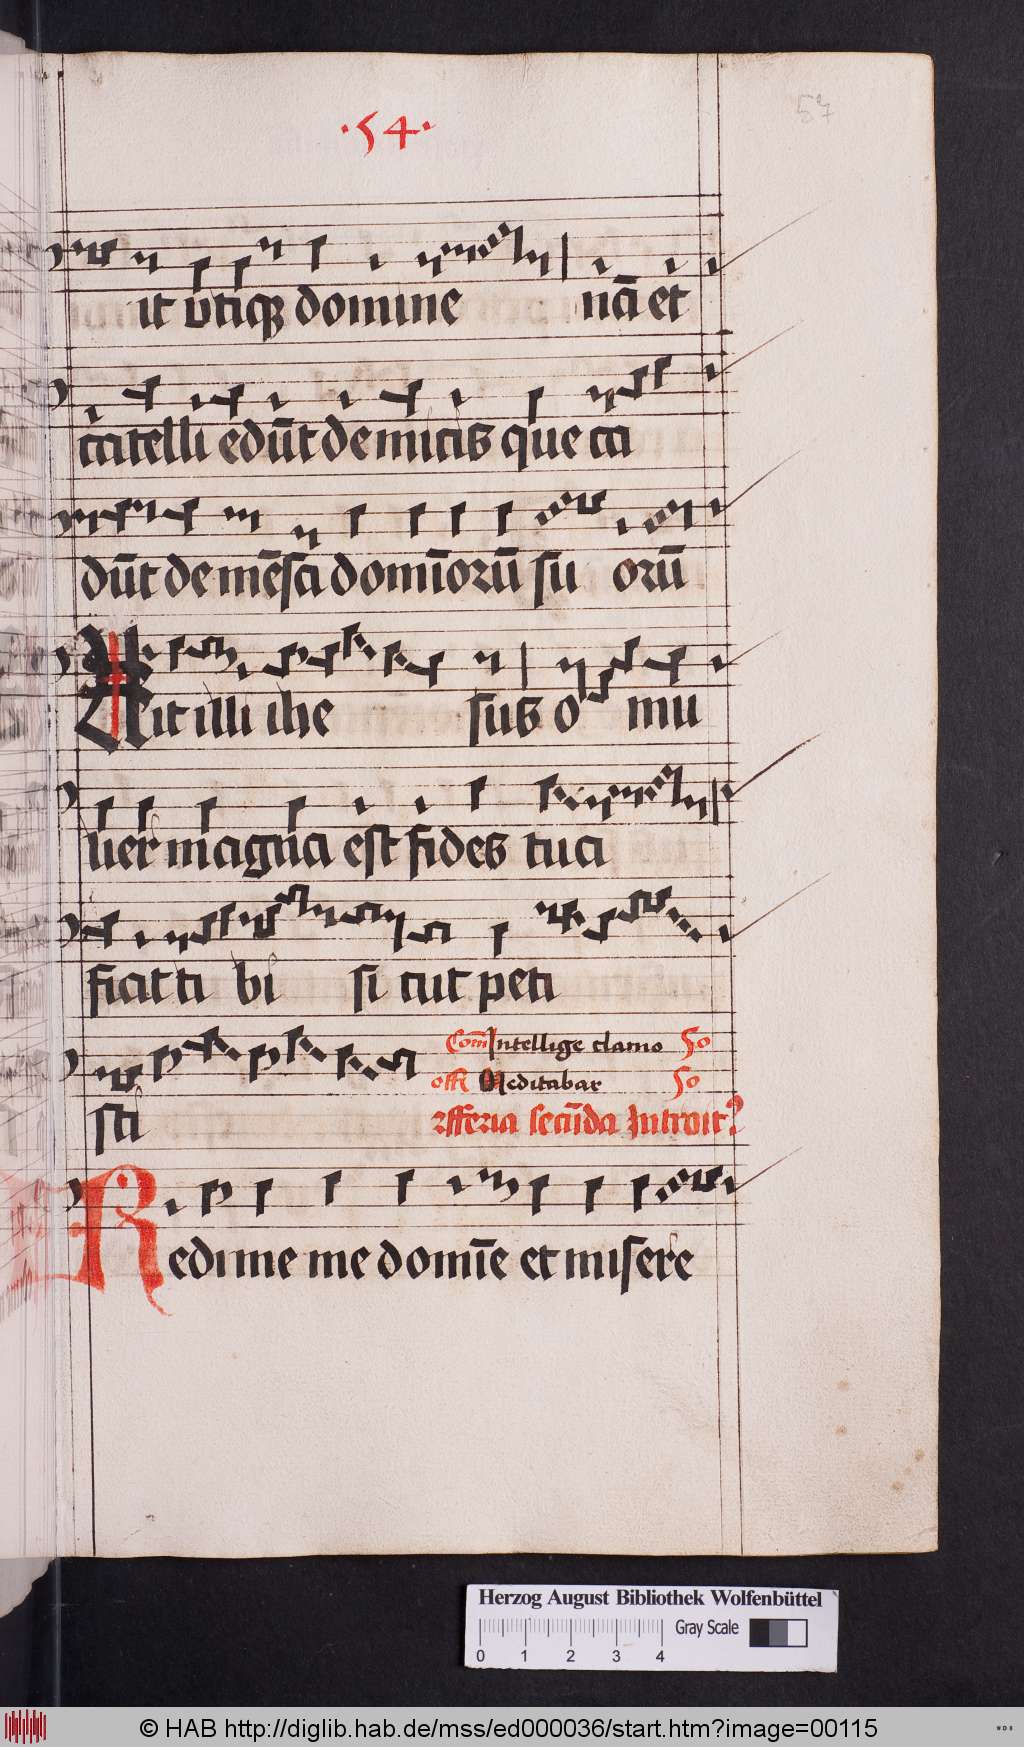 ·54·
57
it vtiqꝫ domine nā et
catelli edūt de micis que ca
dūt de mēsa domīorū su orū
Ait illi ihe sus o mu
lier magna est fides tua
fiat ti bi si cut peti
Com̄ Intellige clamo 50
sti
off Meditabar 50
feria secūda Introit
Redime me domīe et misere
Herzog August Bibliothek Wolfenbüttel
0 1 2 3 4
Gray Scale
© HAB http://diglib.hab.de/mss/ed000036/start.htm?image=00115